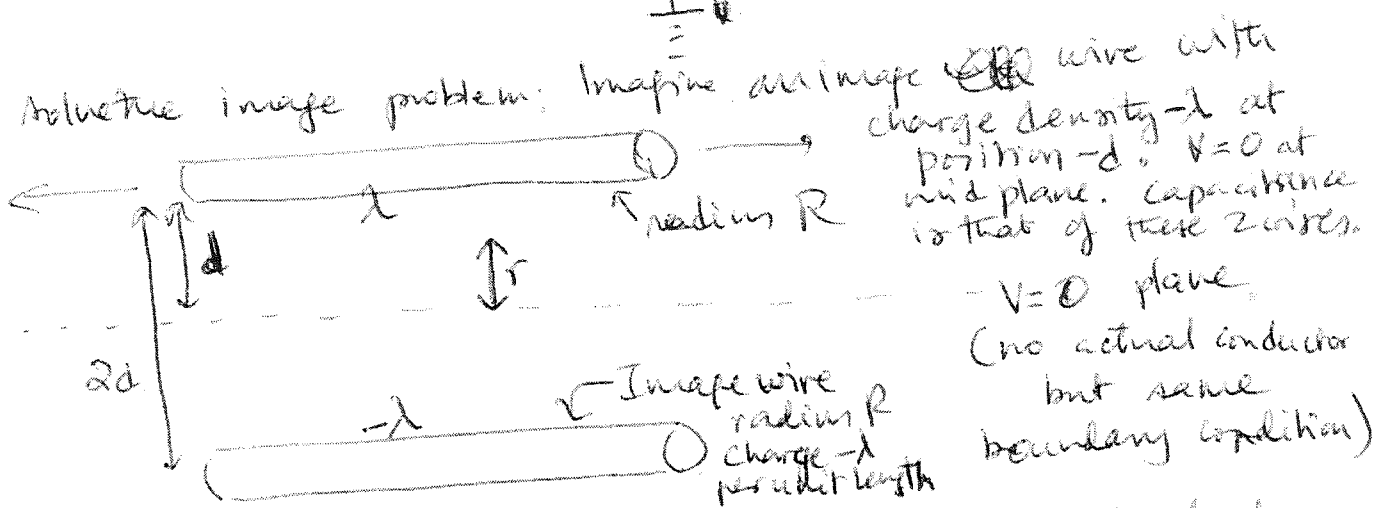 image problem: Imagine an image wire with
charge density -λ at
position -d. V=0 at
mid plane. Capacitance
is that of these 2 wires.
λ
radius R
d
r
V=0 plane
(no actual conductor
but same
boundary condition)
2d
Image wire
radius R
charge -λ
per unit length
-λ